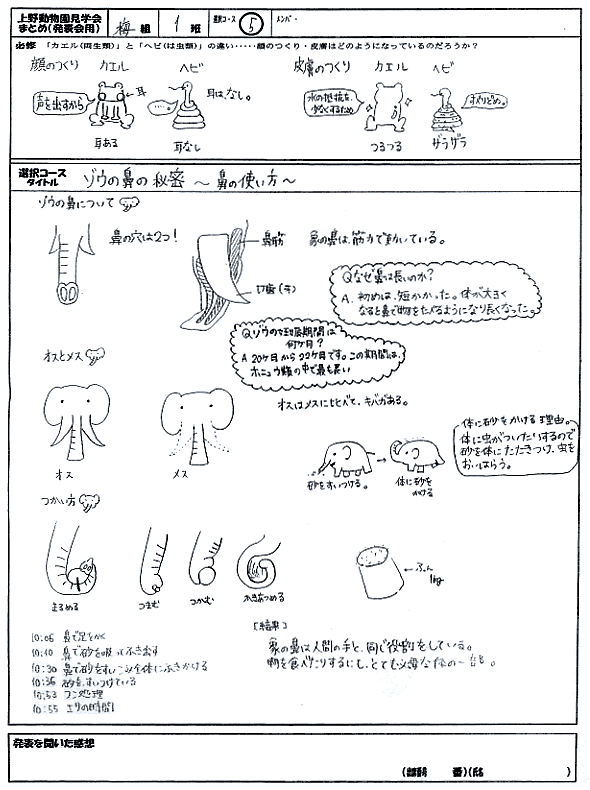 上野動物園見学会
まとめ(発表会用)
梅 組 1 班 選択コース 5 メンバー
必修 「カエル(両生類)」と「ヘビ(は虫類)」の違い‥‥‥顔のつくり・皮膚はどのようになっているのだろうか?
顔のつくり カエル ヘビ
声を出すから
耳
耳は、なし。
耳ある 耳なし
皮膚のつくり カエル ヘビ
水の抵抗を
少なくするため
すべりどめ。
つるつる ザラザラ
選択コース
タイトル
ゾウの鼻の秘密 ~ 鼻の使い方 ~
ゾウの鼻について
鼻の穴は2つ!
鼻筋
切歯(キバ)
象の鼻は、筋力で動いている。
Qなぜ鼻は長いのか?
A. 初めは、短かかった。体が大きく
なると鼻で物をたべるようになり長くなった。
Qゾウの妊娠期間は
何ケ月?
A 20ケ月から22ケ月です。この期間は、
ホニュウ類の中で最も長い
オスとメス
オスはメスに比べて、キバがある。
オス メス
砂をすいつける。
体に砂を
かける
体に砂をかける理由。
体に虫がついたりするので
砂を体にたたきつけ、虫を
おいはらう。
つかい方
まるめる つまむ つかむ かきあつめる
ふん
1kg
10:05 鼻で足をかく
10:10 鼻で砂を吸ってふき出す
10:30 鼻で砂をすいこみ全体にふきかける
10:36 砂を、すいつけている
10:53 フン処理
10:55 エサの時間
[結果]
象の鼻は人間の手と、同じ役割をしている。
物を食べたりするにも、とても必要な体の一部。
発表を聞いた感想
( 組 番)(氏 )